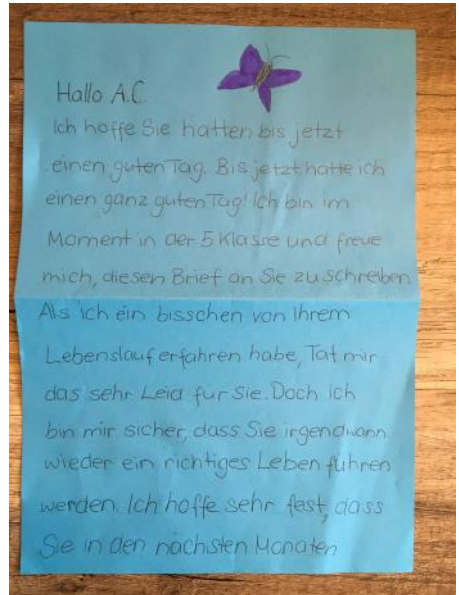 Hallo A.C.
Ich hoffe Sie hatten bis jetzt
einen guten Tag. Bis jetzt hatte ich
einen ganz guten Tag! Ich bin im
Moment in der 5 Klasse und freue
mich, diesen Brief an Sie zu schreiben
Als ich ein bisschen von Ihrem
Lebenslauf erfahren habe, Tat mir
das sehr Leid für Sie. Doch ich
bin mir sicher, dass Sie irgendwann
wieder ein richtiges Leben führen
werden. Ich hoffe sehr fest, dass
Sie in den nächsten Monaten